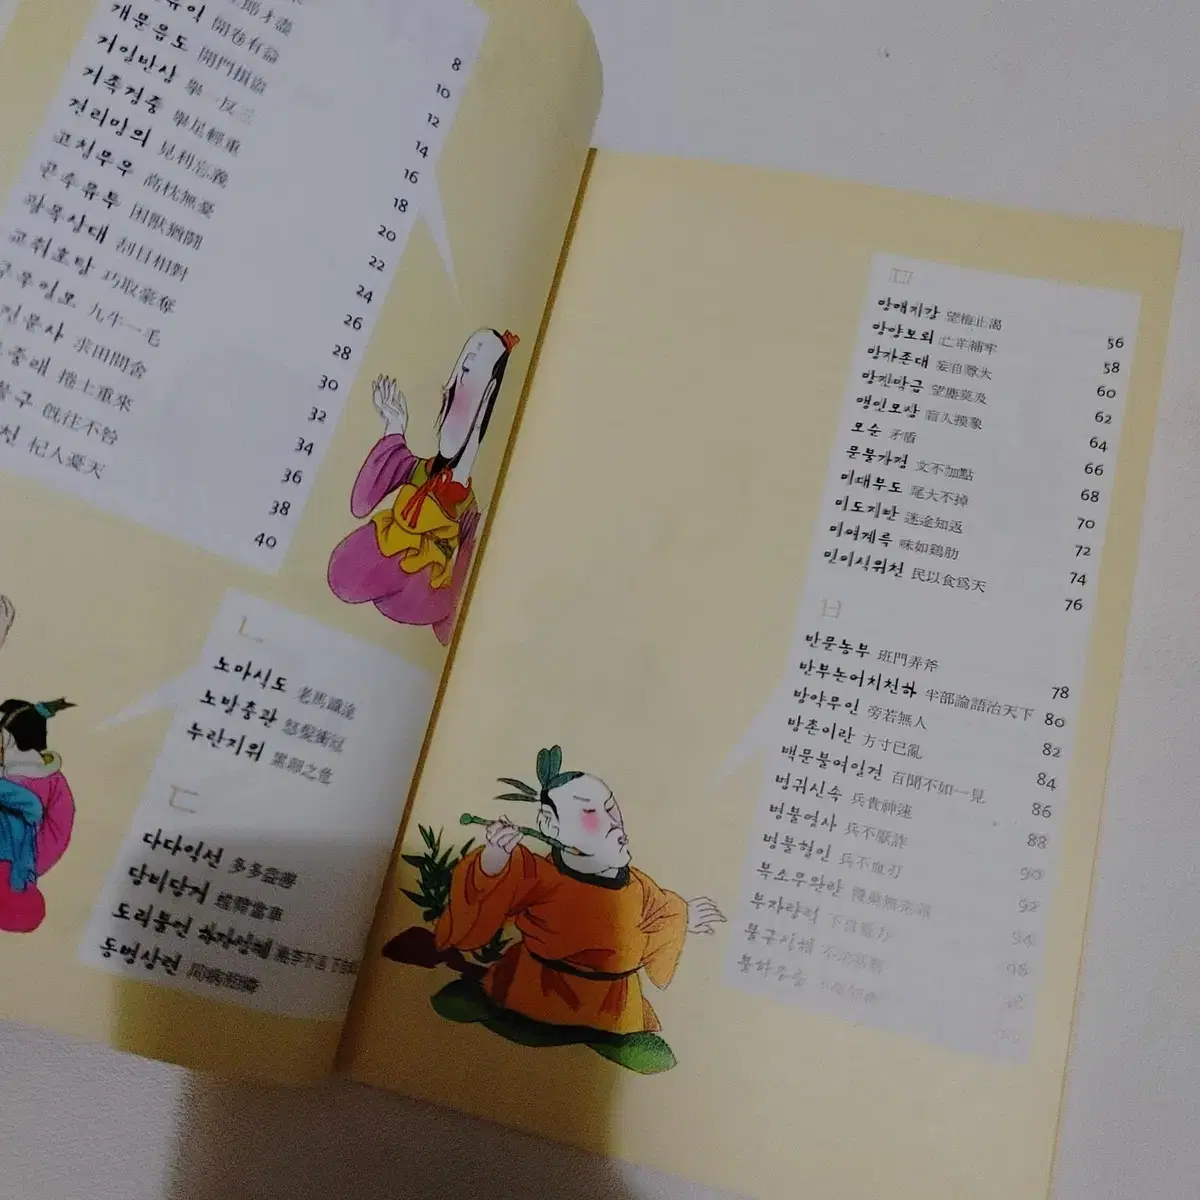 開卷有益
8
개문읍도 開門揖盜
10
거일반삼 擧一反三
12
거족경중 擧足輕重
14
견리망의 見利忘義
16
고침무우 高枕無憂
18
곤수유투 困獸猶鬪
20
괄목상대 刮目相對
22
교취호탈 巧取豪奪
24
구우일모 九牛一毛
26
전문사 求田問舍
28
중래 捲土重來
30
불구 旣往不咎
32
천 杞人憂天
34
36
38
40
ㄴ
노마식도 老馬識途
노발충관 怒髮衝冠
누란지위 累卵之危
ㄷ
다다익선 多多益善
당비당거 螳臂當車
도리불언 하자성혜
동병상련 同病相憐
ㅁ
망매지갈 望梅止渴 56
망양보뢰 亡羊補牢 58
망자존대 妄自尊大 60
망진막급 望塵莫及 62
맹인모상 盲人摸象 64
모순 矛盾 66
문불가점 文不加點 68
미대부도 尾大不掉 70
미도지반 迷途知返 72
미여계륵 味如鷄肋 74
민이식위천 民以食爲天 76
ㅂ
반문농부 班門弄斧 78
반부논어치천하 半部論語治天下 80
방약무인 旁若無人 82
방촌이란 方寸已亂 84
백문불여일견 百聞不如一見 86
병귀신속 兵貴神速 88
병불염사 兵不厭詐 90
병불혈인 兵不血刃 92
복소무완란 94
부자량력 不自量力
불구심해